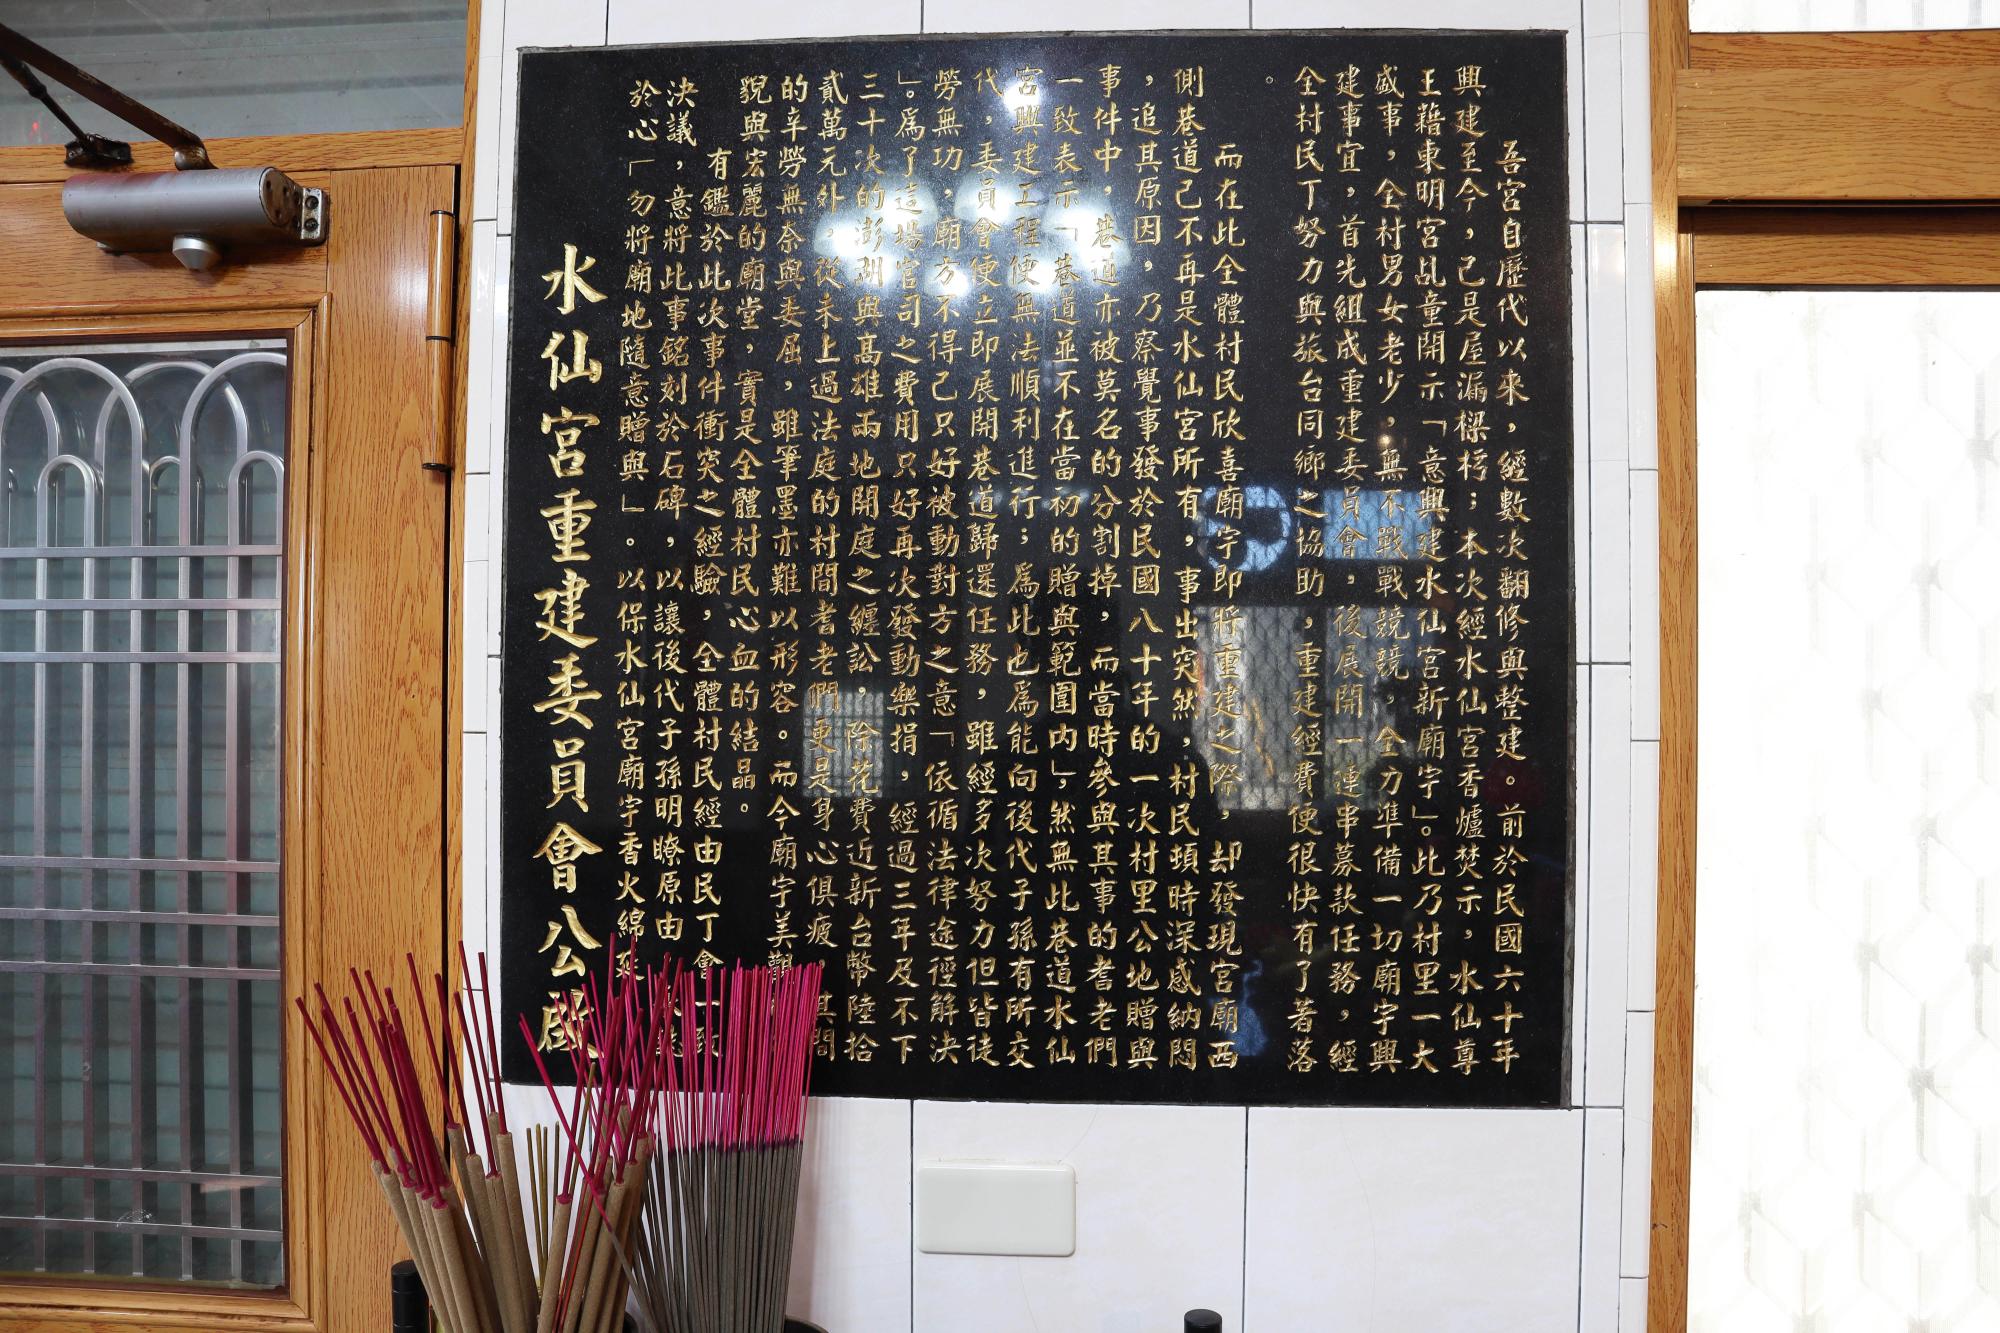 吾宮自歷代以來，經數次翻修與整建。前於民國六十年
興建至今，已是屋漏樑朽；本次經水仙宮香爐焚示，水仙尊
王藉東明宮乩童開示「意興建水仙宮新廟宇」。此乃村里一大
盛事，全村男女老少，無不戰戰競競，全力準備一切廟宇興
建事宜，首先組成重建委員會，後展開一連串募款任務，經
全村民丁努力與旅台同鄉之協助，重建經費便很快有了著落
。
而在此全體村民欣喜廟宇即將重建之際，却發現宮廟西
側巷道已不再是水仙宮所有，事出突然，村民頓時深感納悶
，追其原因，乃察覺事發於民國八十年的一次村里公地贈與
事件中，巷道亦被莫名的分割掉，而當時參與其事的耆老們
一致表示「巷道並不在當初的贈與範圍內」，然無此巷道水仙
宮興建工程便無法順利進行；為此也為能向後代子孫有所交
代，委員會便立即展開巷道歸還任務，雖經多次努力但皆徒
勞無功，廟方不得已只好被動對方之意「依循法律途徑解決
」。為了這場官司之費用只好再次發動樂捐，經過三年及不下
三十次的澎湖與高雄兩地開庭之纏訟，除花費近新台幣陸拾
貳萬元外，從未上過法庭的村間耆老們更是身心俱疲，其間
的辛勞無奈與委屈，雖筆墨亦難以形容。而今廟宇美觀
貌與宏麗的廟堂，實是全體村民心血的結晶。
有鑑於此次事件衝突之經驗，全體村民經由民丁會一致
決議，意將此事銘刻於石碑，以讓後代子孫明瞭原由
於心「勿將廟地隨意贈與」。以保水仙宮廟宇香火綿延
水仙宮重建委員會公啟